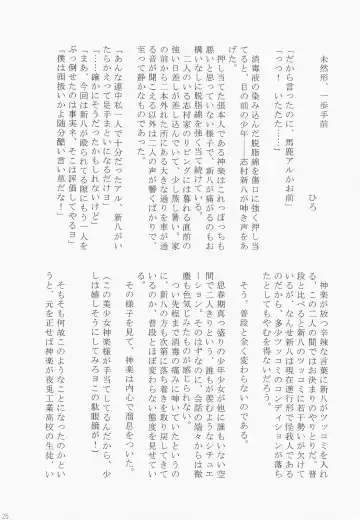 未然形、一歩手前
ひろ
「だから言ったのに、馬鹿アルかお前」
「っつ！　いたたた…」
消毒液の染み込んだ脱脂綿を傷口に強く押し当
てると、目の前の少年――志村新八が呻き声をあ
げた。
押し当てた張本人である神楽はこれっぽっちも
悪いと思っていない様子で、新八が痛がるのもお
構いなしに脱脂綿を強く当て続けている。
二人のいる志村家のリビングには暮れる直前の
強い日差しが差し込んでいて、少し蒸し暑い。家
の前から二本外れた所にある大きな通りを車が通
る音が聞こえる以外は二人の声が響くばかりで、
至って静かなものであった。
「あんな連中私一人で十分だったアル、新八がい
たらかえって足手まといになるだけヨ」
「……確かにそうだったかもしれないけど」
「まあ、今回は新八が殴られてる隙にもう一人を
ぶっ倒せたのは事実ネ、そこは評価してやるヨ」
「僕は囮扱いかよ随分酷い言い草だな！」
神楽が放つ辛辣な言葉に新八がツッコミを入れ
る、この二人の間ではお決まりのやりとりだ。普
段と比べると新八のツッコミに若干勢いが欠けて
いるが、なんせ新八は現在進行形で怪我人である
のだから、多少ツッコミのコンディションが落ち
たとしてもやむを得ないだろう。
そう、普段と全く変わらないのである。
思春期真っ盛りの少年少女が他に誰もいない空
間で二人きりという、誰もが羨むようなシチュエ
ーション。そのはずなのに、会話の端々からは微
塵も色気じみたものが感じられない。
つい先程まで消毒の痛みに呻いていたというの
に、新八の方も次第に落ち着きを取り戻してきて
いるのか、普段とほぼ変わらない態度を見せてい
る。
その様子を見て、神楽は内心で溜息をついた。
（この美少女神楽様が手当てしてるんだから、少
しは嬉しそうにしてみろヨこの駄眼鏡が！）
そもそも何故このようなことになったのかとい
うと、元を正せば神楽が夜兎工業高校の生徒、い
25